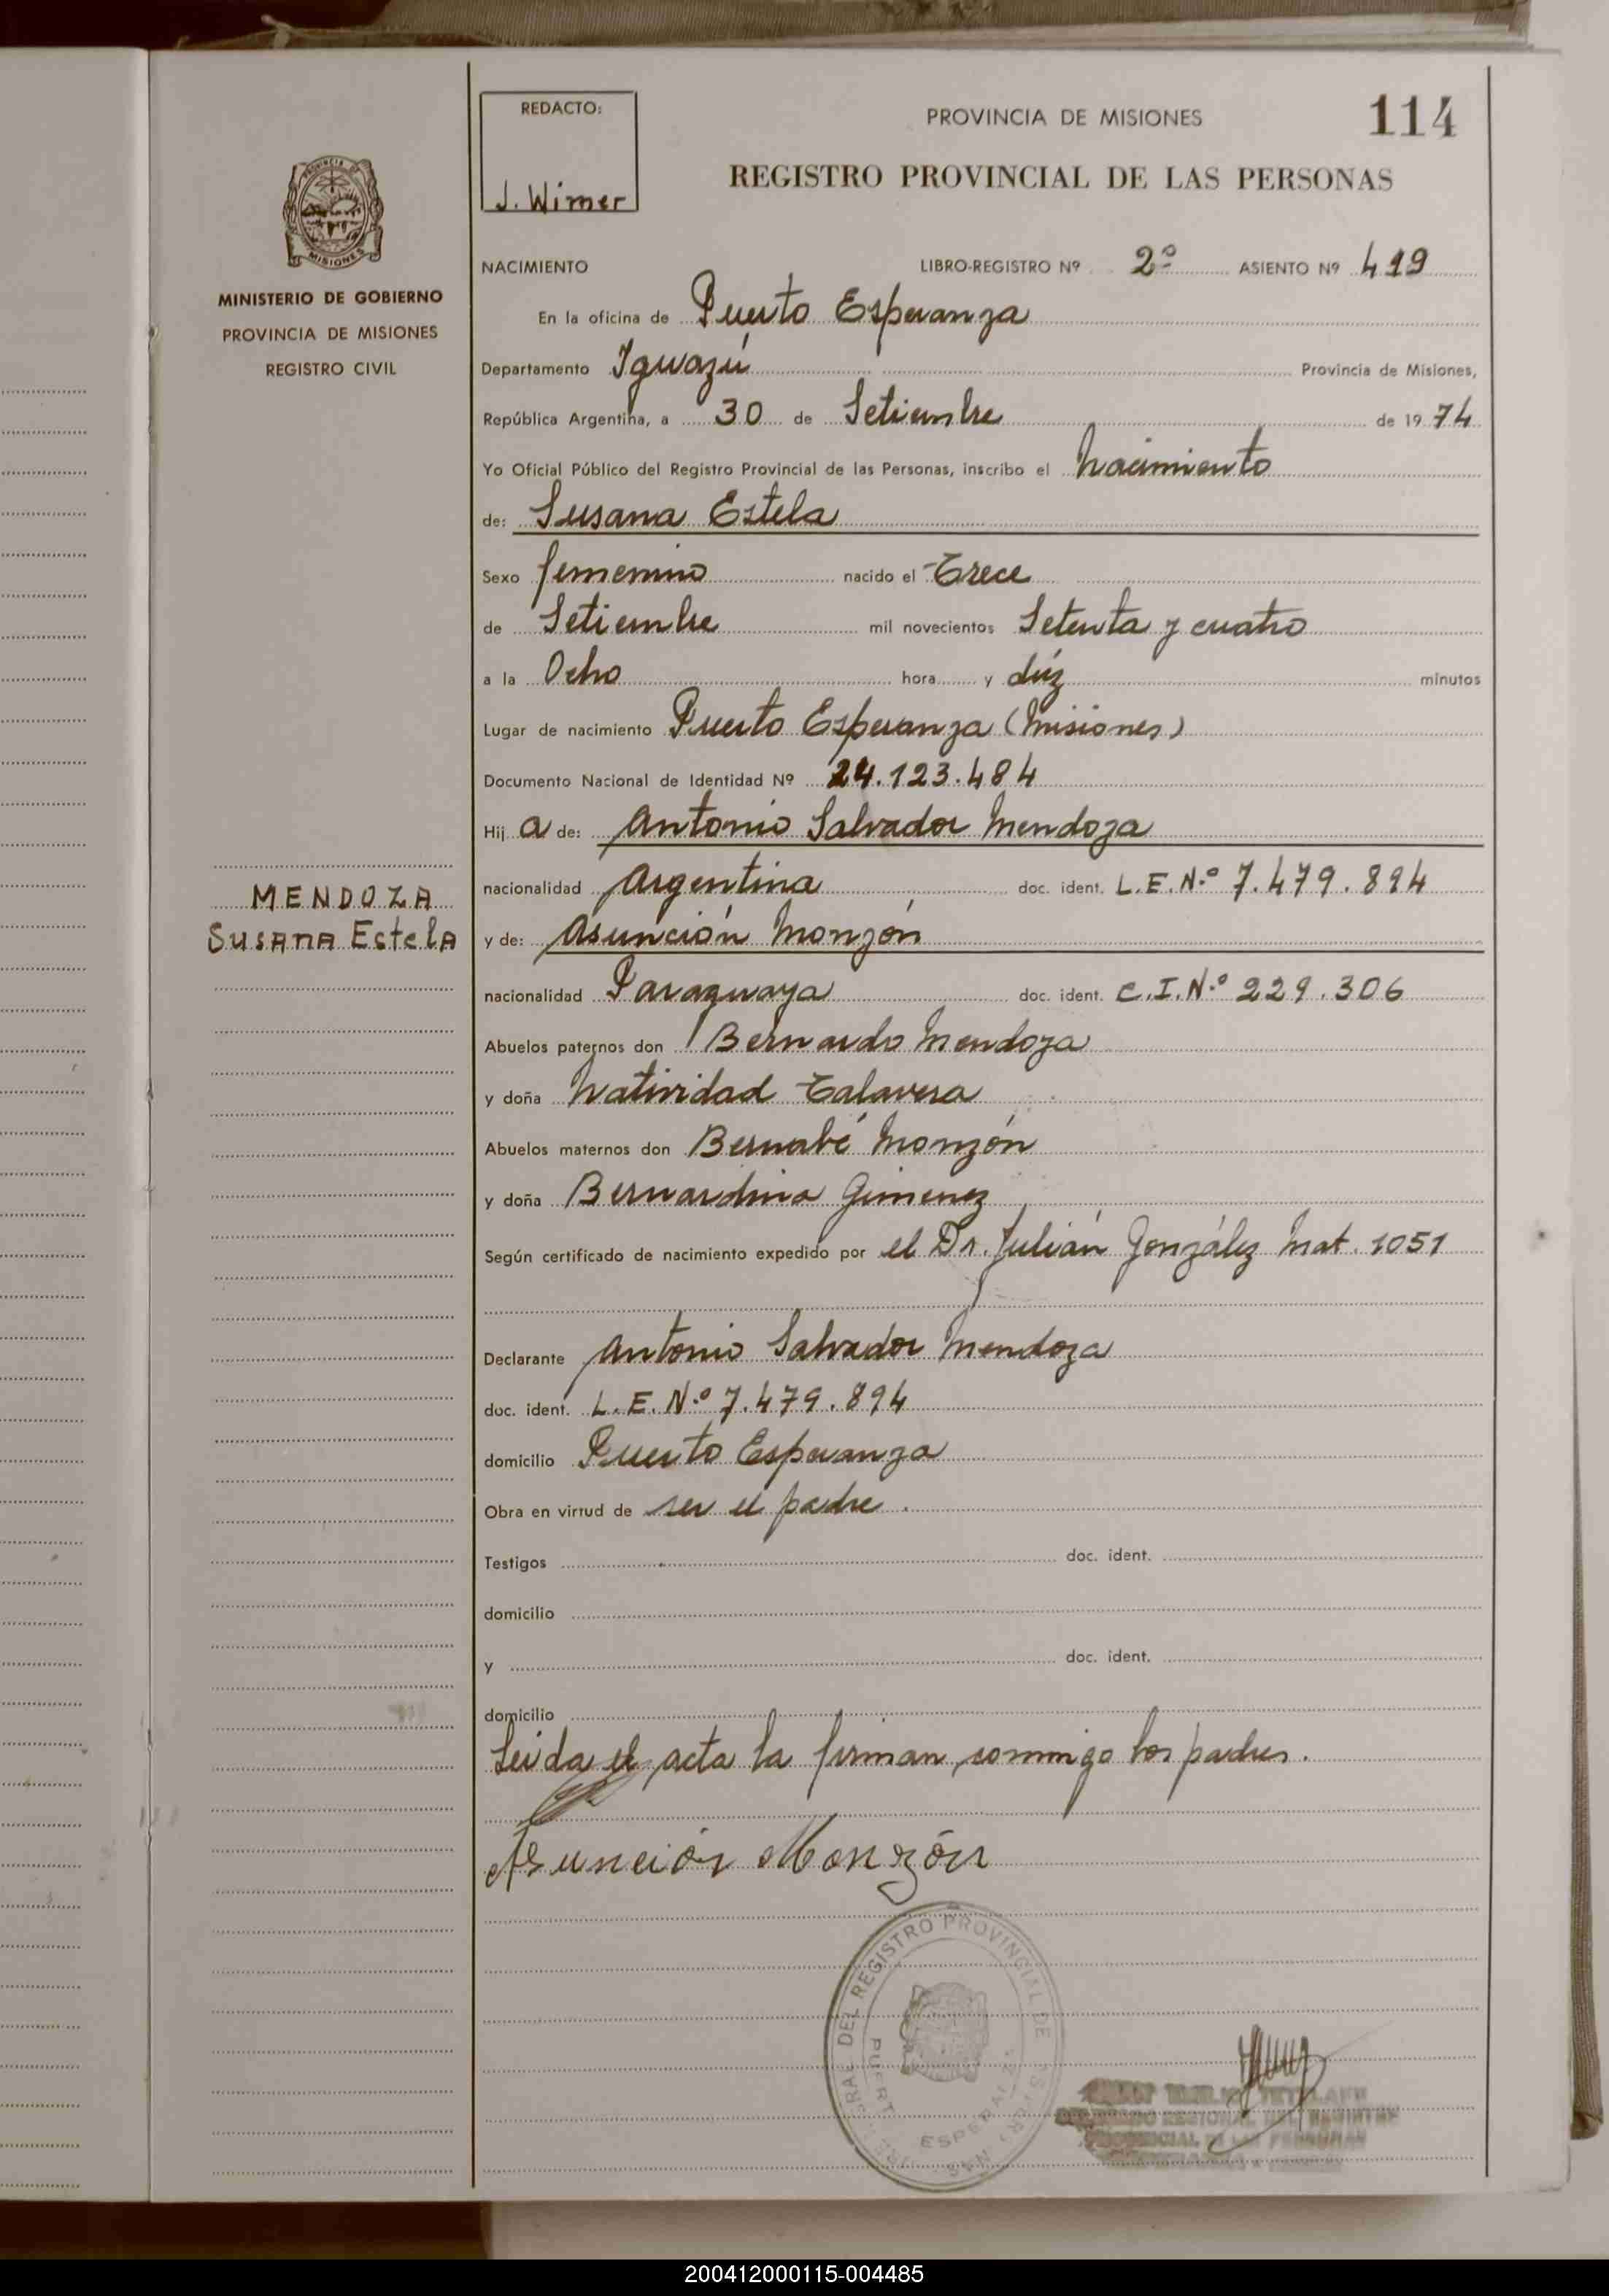 REDACTO:
J. Wimer
PROVINCIA DE MISIONES
114
REGISTRO PROVINCIAL DE LAS PERSONAS
PROVINCIA DE
MISIONES
MINISTERIO DE GOBIERNO
PROVINCIA DE MISIONES
REGISTRO CIVIL
NACIMIENTO LIBRO-REGISTRO Nº 2º ASIENTO Nº 419
En la oficina de Puerto Esperanza
Departamento Iguazú Provincia de Misiones,
República Argentina, a 30 de Setiembre de 19 74
Yo Oficial Público del Registro Provincial de las Personas, inscribo el Nacimiento
de: Susana Estela
Sexo femenino nacido el Trece
de Setiembre mil novecientos Setenta y cuatro
a la Ocho hora y diéz minutos
Lugar de nacimiento Puerto Esperanza (Misiones)
Documento Nacional de Identidad Nº 24.123.484
Hij a de: Antonio Salvador Mendoza
nacionalidad Argentina doc. ident. L.E.N.º 7.479.894
MENDOZA
Susana Estela
y de: Asunción Monzón
nacionalidad Paraguaya doc. ident. C.I.N.º 229.306
Abuelos paternos don Bernardo Mendoza
y doña Natividad Talavera
Abuelos maternos don Bernabé Monzón
y doña Bernardina Gimenez
Según certificado de nacimiento expedido por el Dr. Julián González Mat. 1051
Declarante Antonio Salvador Mendoza
doc. ident. L.E.N.º 7.479.894
domicilio Puerto Esperanza
Obra en virtud de ser el padre.
Testigos doc. ident.
domicilio
y doc. ident.
domicilio
Leida el acta la firman conmigo los padres.
Asunción Monzón
DEL REGISTRO PROVINCIAL DE
PUERTO ESPERANZA
200412000115-004485